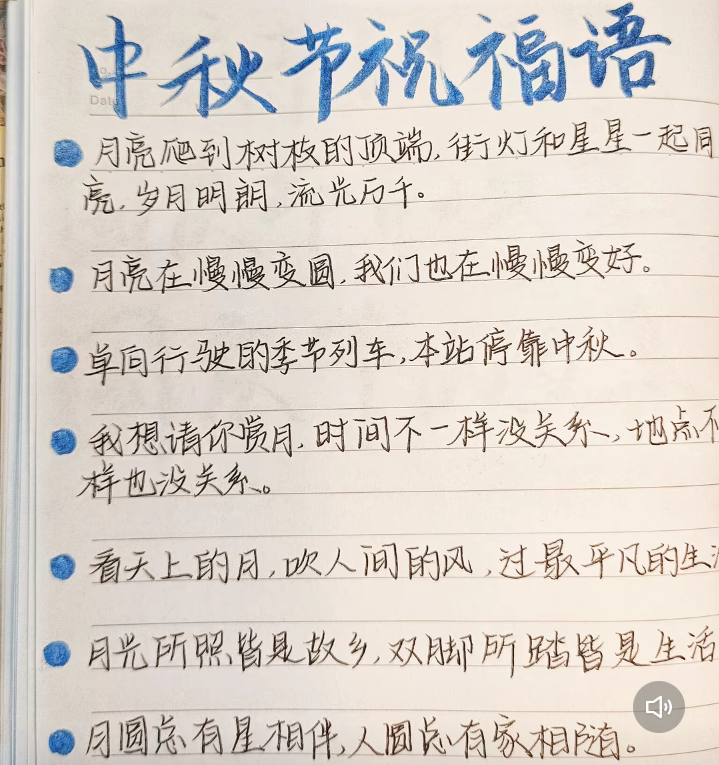 中秋节祝福语
Date
月亮爬到树枝的顶端,街灯和星星一起同
亮,岁月明朗,流光万千。
月亮在慢慢变圆,我们也在慢慢变好。
单向行驶的季节列车,本站停靠中秋。
我想请你赏月,时间不一样没关系,地点不
样也没关系。
看天上的月,吹人间的风,过最平凡的生活
月光所照皆是故乡,双脚所踏皆是生活
月圆总有星相伴,人圆总有家相随。